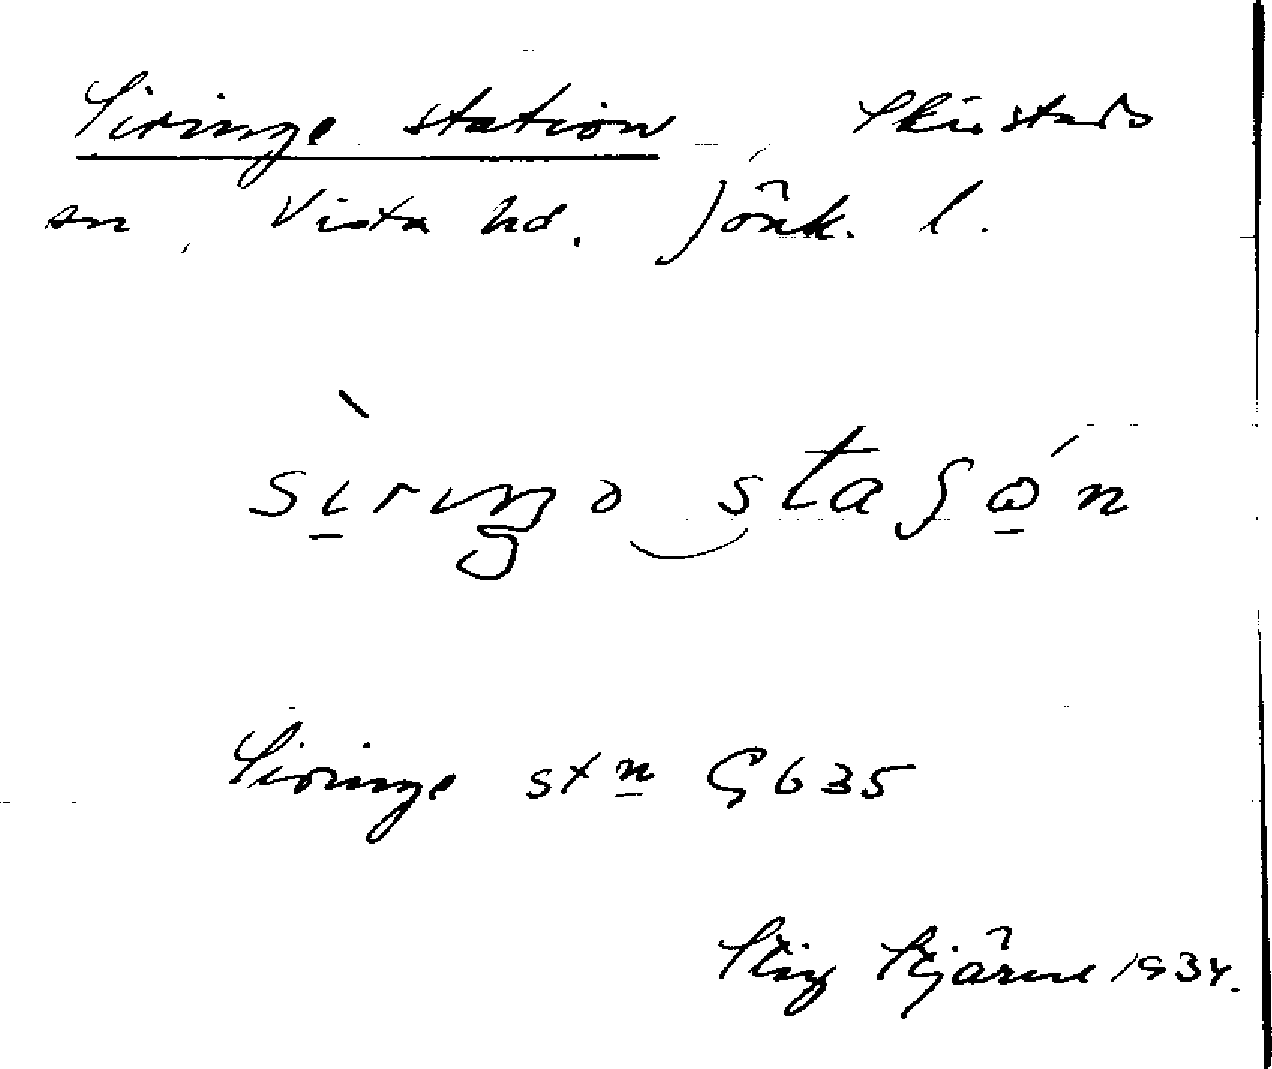 Siringe station, Skärstads
sn, Vista hd. Jönk. l.
sìringə staʃón
Siringe stn G 635
Stig Stjärne 1934.